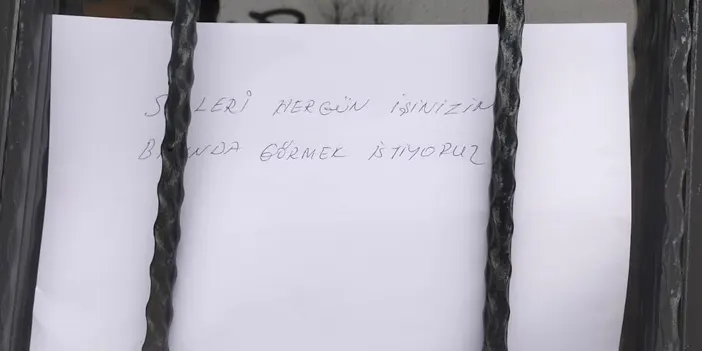 SİZLERİ HERGÜN İŞİNİZİN
BAŞINDA GÖRMEK İSTİYORUZ